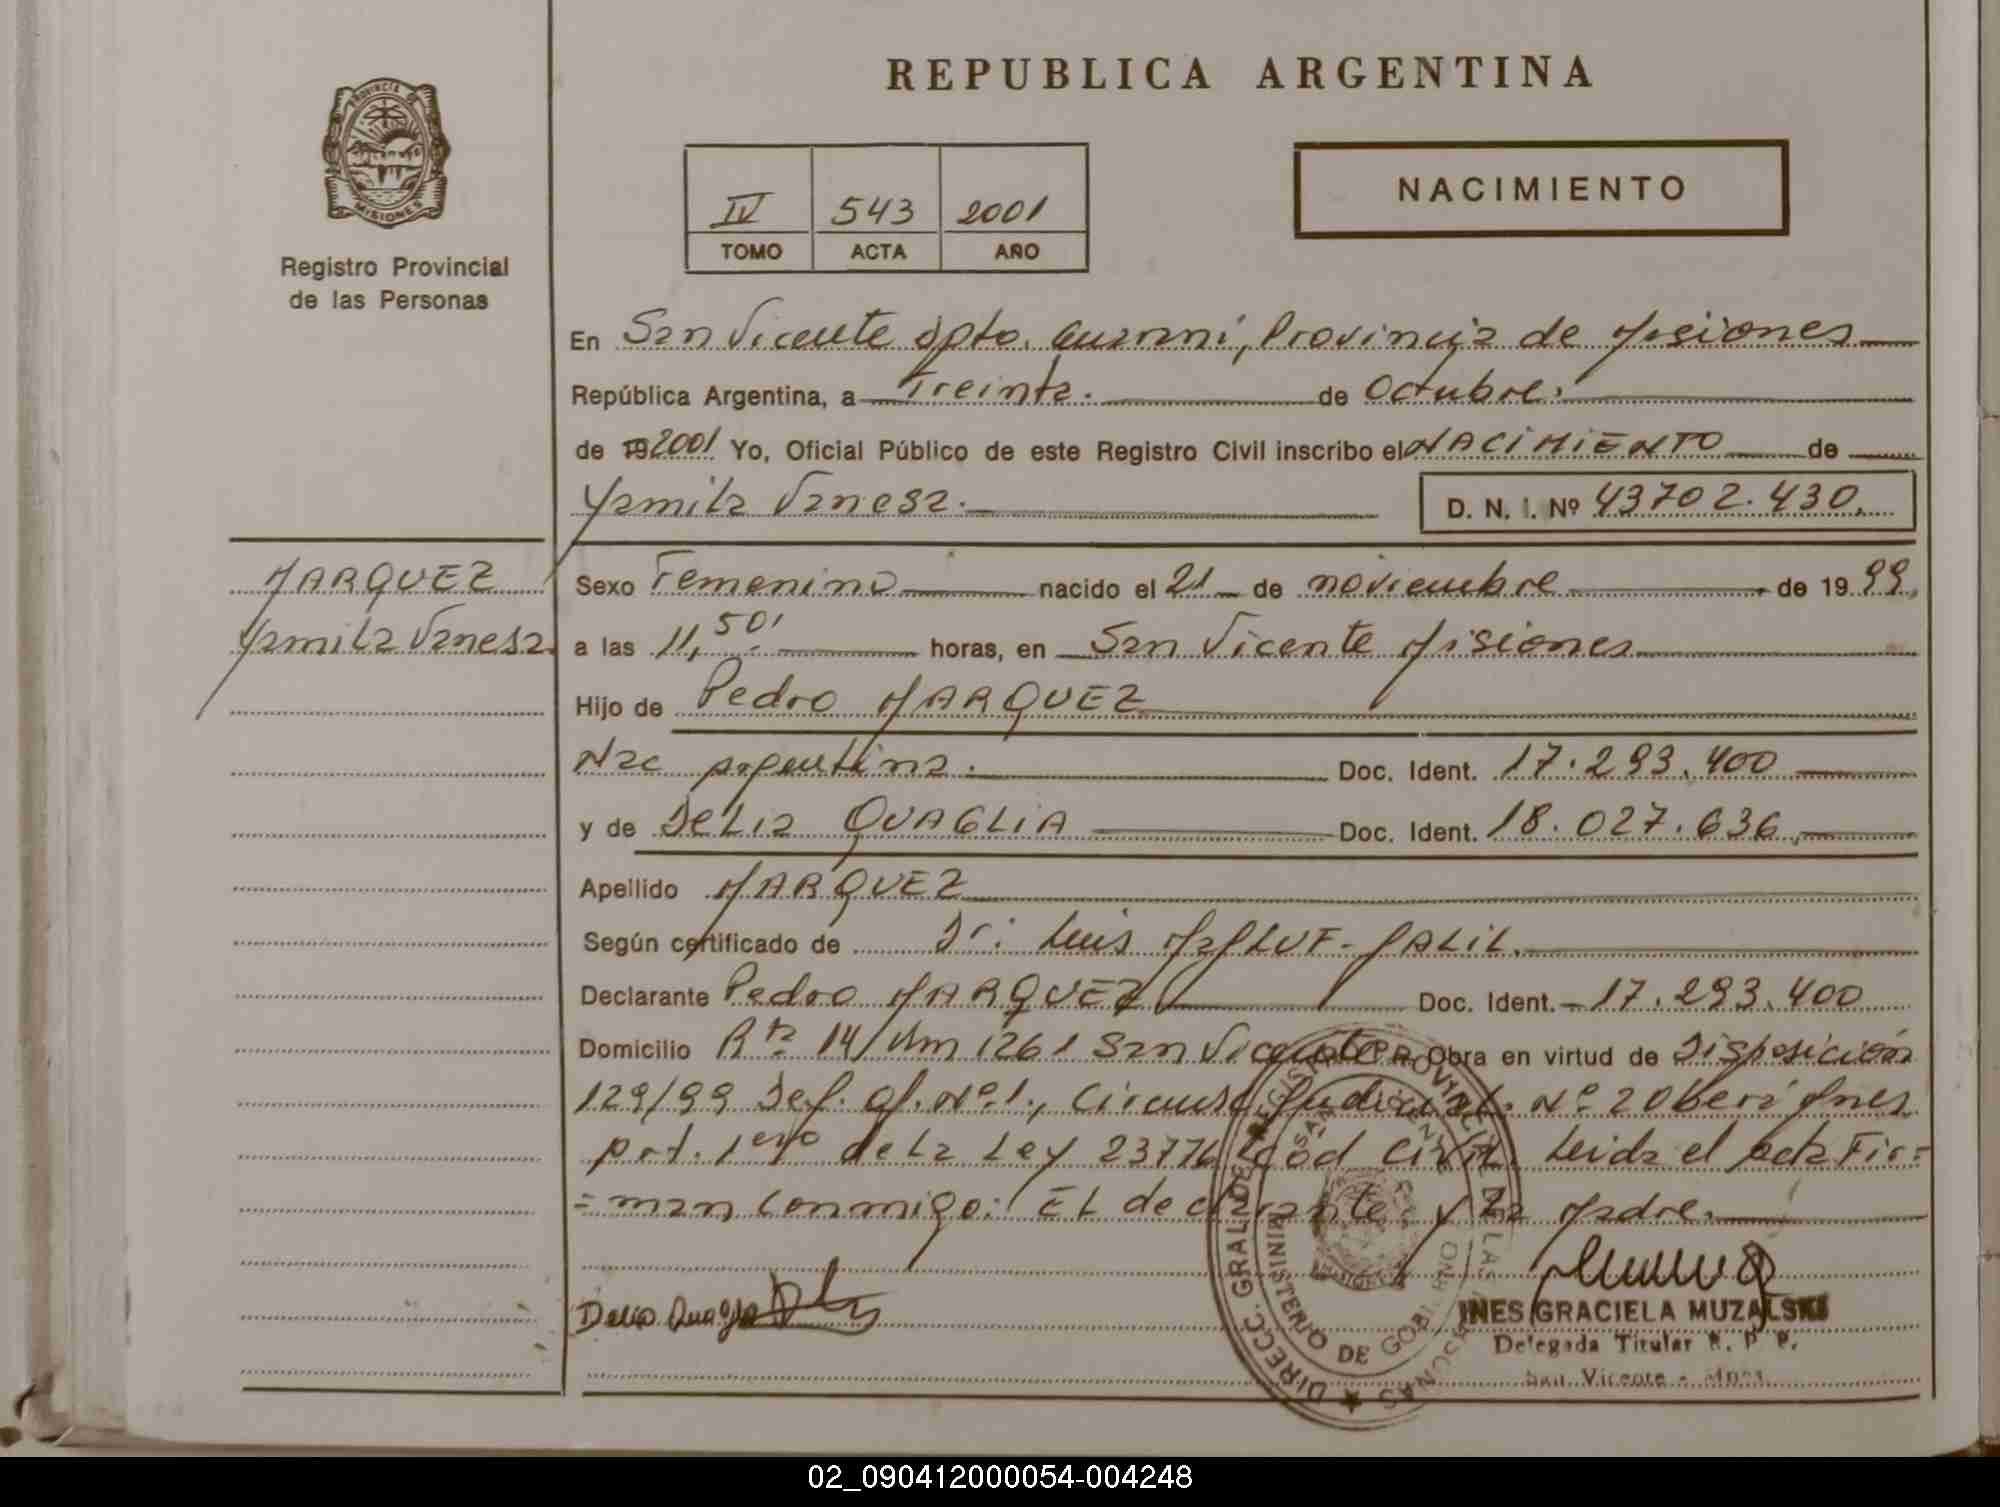 PROVINCIA DE
MISIONES
Registro Provincial
de las Personas
REPUBLICA ARGENTINA
IV 543 2001
TOMO ACTA AÑO
NACIMIENTO
En San Vicente Dpto. Guaraní, Provincia de Misiones
República Argentina, a Treinta. de Octubre.
de 19 2001 Yo, Oficial Público de este Registro Civil inscribo el NACIMIENTO de
Yamila Vanesa. D. N. I. Nº 43702.430.
MARQUEZ
Yamila Vanesa.
Sexo Femenino nacido el 21 de noviembre de 19 99,
a las 11,50' horas, en San Vicente Misiones
Hijo de Pedro MARQUEZ
Nac Argentina. Doc. Ident. 17.293.400
y de DeLia QUAGLiA Doc. Ident. 18.027.636
Apellido MARQUEZ
Según certificado de Dr: Luis
Declarante Pedro MARQUEZ Doc. Ident. 17.293.400
Domicilio Rta 14/Km 1261 San Vicente Obra en virtud de Disposición
129/99 Def. Of. Nº1., Circunsc. Judicial. Nº 2 Oberá Mnes
Art. 1ero de La Ley 23776 Cód Civil. Leida el Acta Fir=
=man Conmigo: EL declarante y La Madre.
Delia Quaglia
DIRECC. GRAL. DEL REGISTRO PROVINCIAL DE LAS PERSONAS
MINISTERIO DE GOBIERNO
SAN VICENTE
INES GRACIELA MUZALSKI
Delegada Titular R. P. P.
San Vicente - Mnes.
02_090412000054-004248